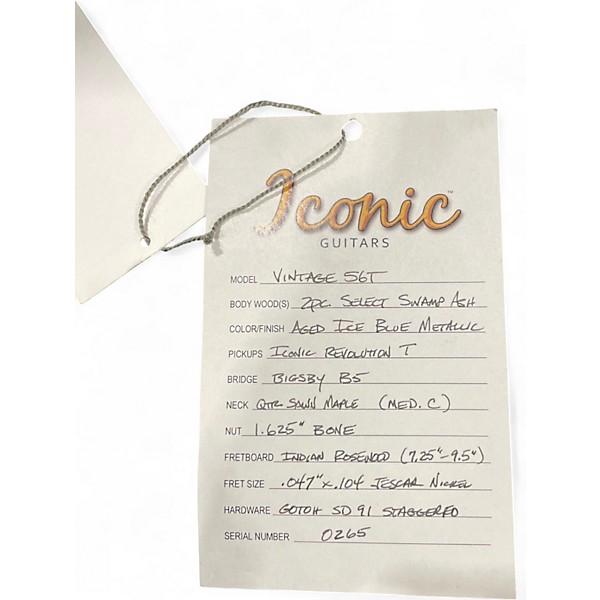 Iconic™
GUITARS
MODEL VINTAGE 56T
BODY WOOD(S) 2PC. SELECT SWAMP ASH
COLOR/FINISH AGED ICE BLUE METALLIC
PICKUPS ICONIC REVOLUTION T
BRIDGE BIGSBY B5
NECK QTR SAWN MAPLE (MED. C)
NUT 1.625" BONE
FRETBOARD INDIAN ROSEWOOD (7.25"-9.5")
FRET SIZE .047" x .104 JESCAR NICKEL
HARDWARE GOTOH SD 91 STAGGERED
SERIAL NUMBER 0265